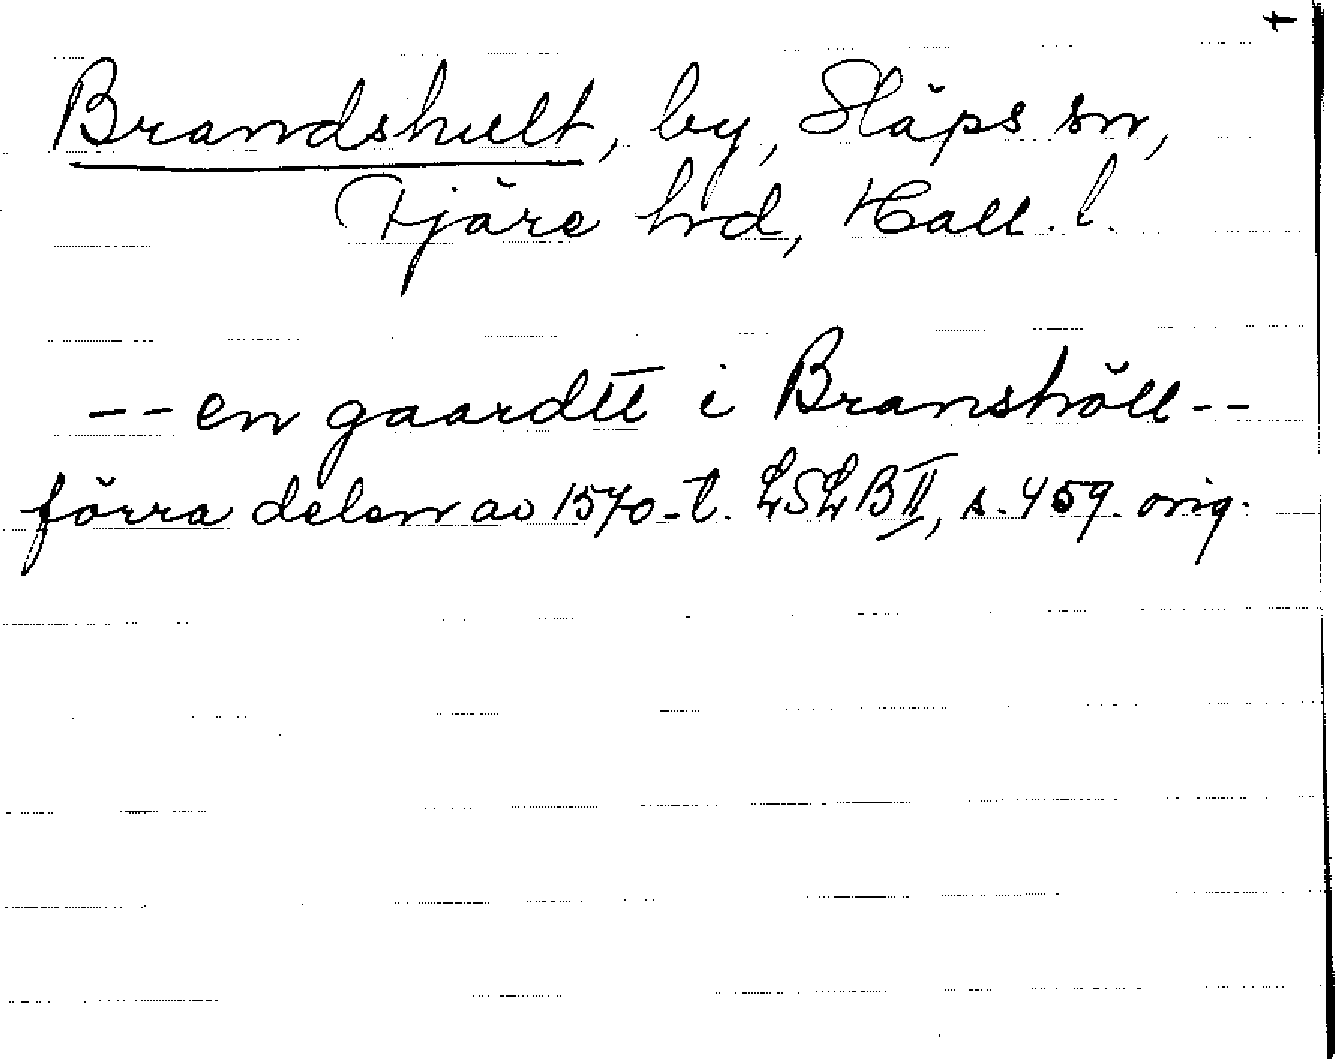 Brandshult, by, Släps sn,
Fjäre hd, Hall. l.
-- en gaardtt i Branshöll --
förra delen av 1570-t. LSLB II, s. 459. orig.